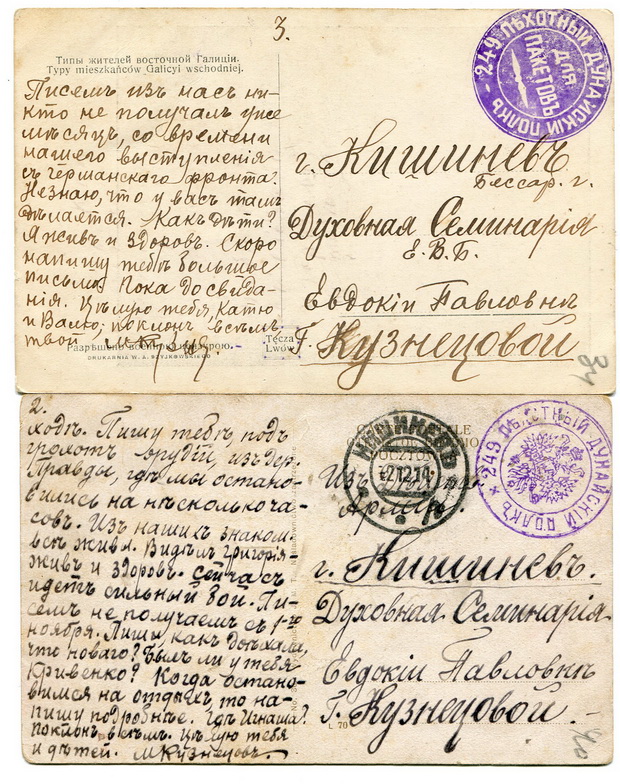 3.
249 ПѢХОТНЫЙ ДУНАЙСКІЙ ПОЛКЪ
ДЛЯ ПАКЕТОВЪ
Типы жителей восточной Галиціи.
Typy mieszkańców Galicyi wschodniej.
Писемъ изъ насъ ни-
кто не получалъ уже
мѣсяцъ, со времени
нашего выступленія
съ германскаго фронта.
Незнаю, что у васъ тамъ
дѣлается. Какъ дѣти?
Я живъ и здоровъ. Скоро
напишу тебѣ большое
письмо. Пока до свида-
нія. Цѣлую тебя, Катю
и Валю; поклонъ всѣмъ,
твой
г. Кишиневъ
Бессар. г.
Духовная Семинарія
Е. В. Б.
Евдокіи Павловнѣ
Г. Кузнецовой
Разрѣшено военной цензурою.
DRUKARNIA W. A. SZYJKOWSKIEGO
Tęcza
Lwów
34
2.
ходѣ. Пишу тебѣ подъ
грохотъ орудій, изъ дер.
Правды, гдѣ мы остано-
вились на нѣсколько ча-
совъ. Изъ нашихъ знаком.
всѣ живы. Видѣлъ Григорія
живъ и здоровъ. Сейчасъ
идетъ сильный бой. Пи-
семъ не получаемъ съ 1-го
ноября. Пиши какъ доѣхала,
что новаго? Былъ ли у тебя
Кривенко? Когда остано-
вимся на отдыхъ, то на-
пишу подробнѣе. Гдѣ Игнаша?
поклонъ всѣм. Цѣлую тебя
и дѣтей. МКузнецовъ.
КИШИНЕВЪ
2.12.14
249 ПѢХОТНЫЙ ДУНАЙСКІЙ ПОЛКЪ
Изъ
Арміи.
г. Кишиневъ.
Духовная Семинарія
Евдокіи Павловнѣ
Г. Кузнецовой.